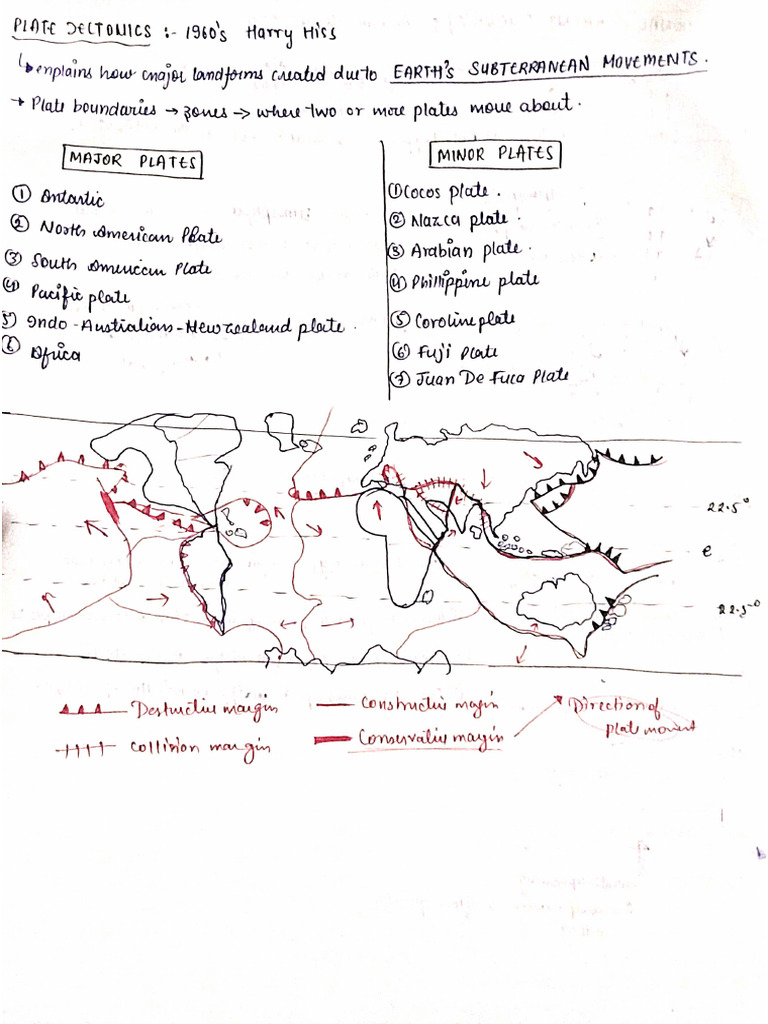 PLATE DECTONICS :- 1960's Harry Hiss
↳ enplains how major landforms created due to EARTH'S SUBTERRANEAN MOVEMENTS.
→ Plate boundaries → zones → where two or more plates move about.
MAJOR PLATES
① Antartic
② North American Plate
③ South American Plate
④ Pacific plate
5) Indo - Australians - New zealand plate.
⑥ Africa
MINOR PLATES
① Cocos plate.
② Nazca plate.
③ Arabian plate.
④ Phillippine plate
⑤ Caroline plate
⑥ Fuji Plate
⑦ Juan De Fuca Plate
22.5°
e
22.5°
Destructive margin
Constructive margin
Direction of
plate movement
Collision margin
Conservative margin